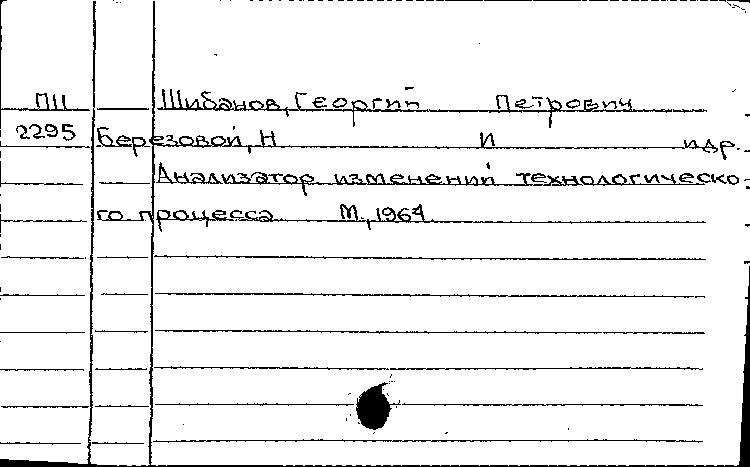 ПII Шибанов, Георгий Петрович
2295 Березовой, Н И и др.
Анализатор изменений технологическо-
го процесса М., 1964